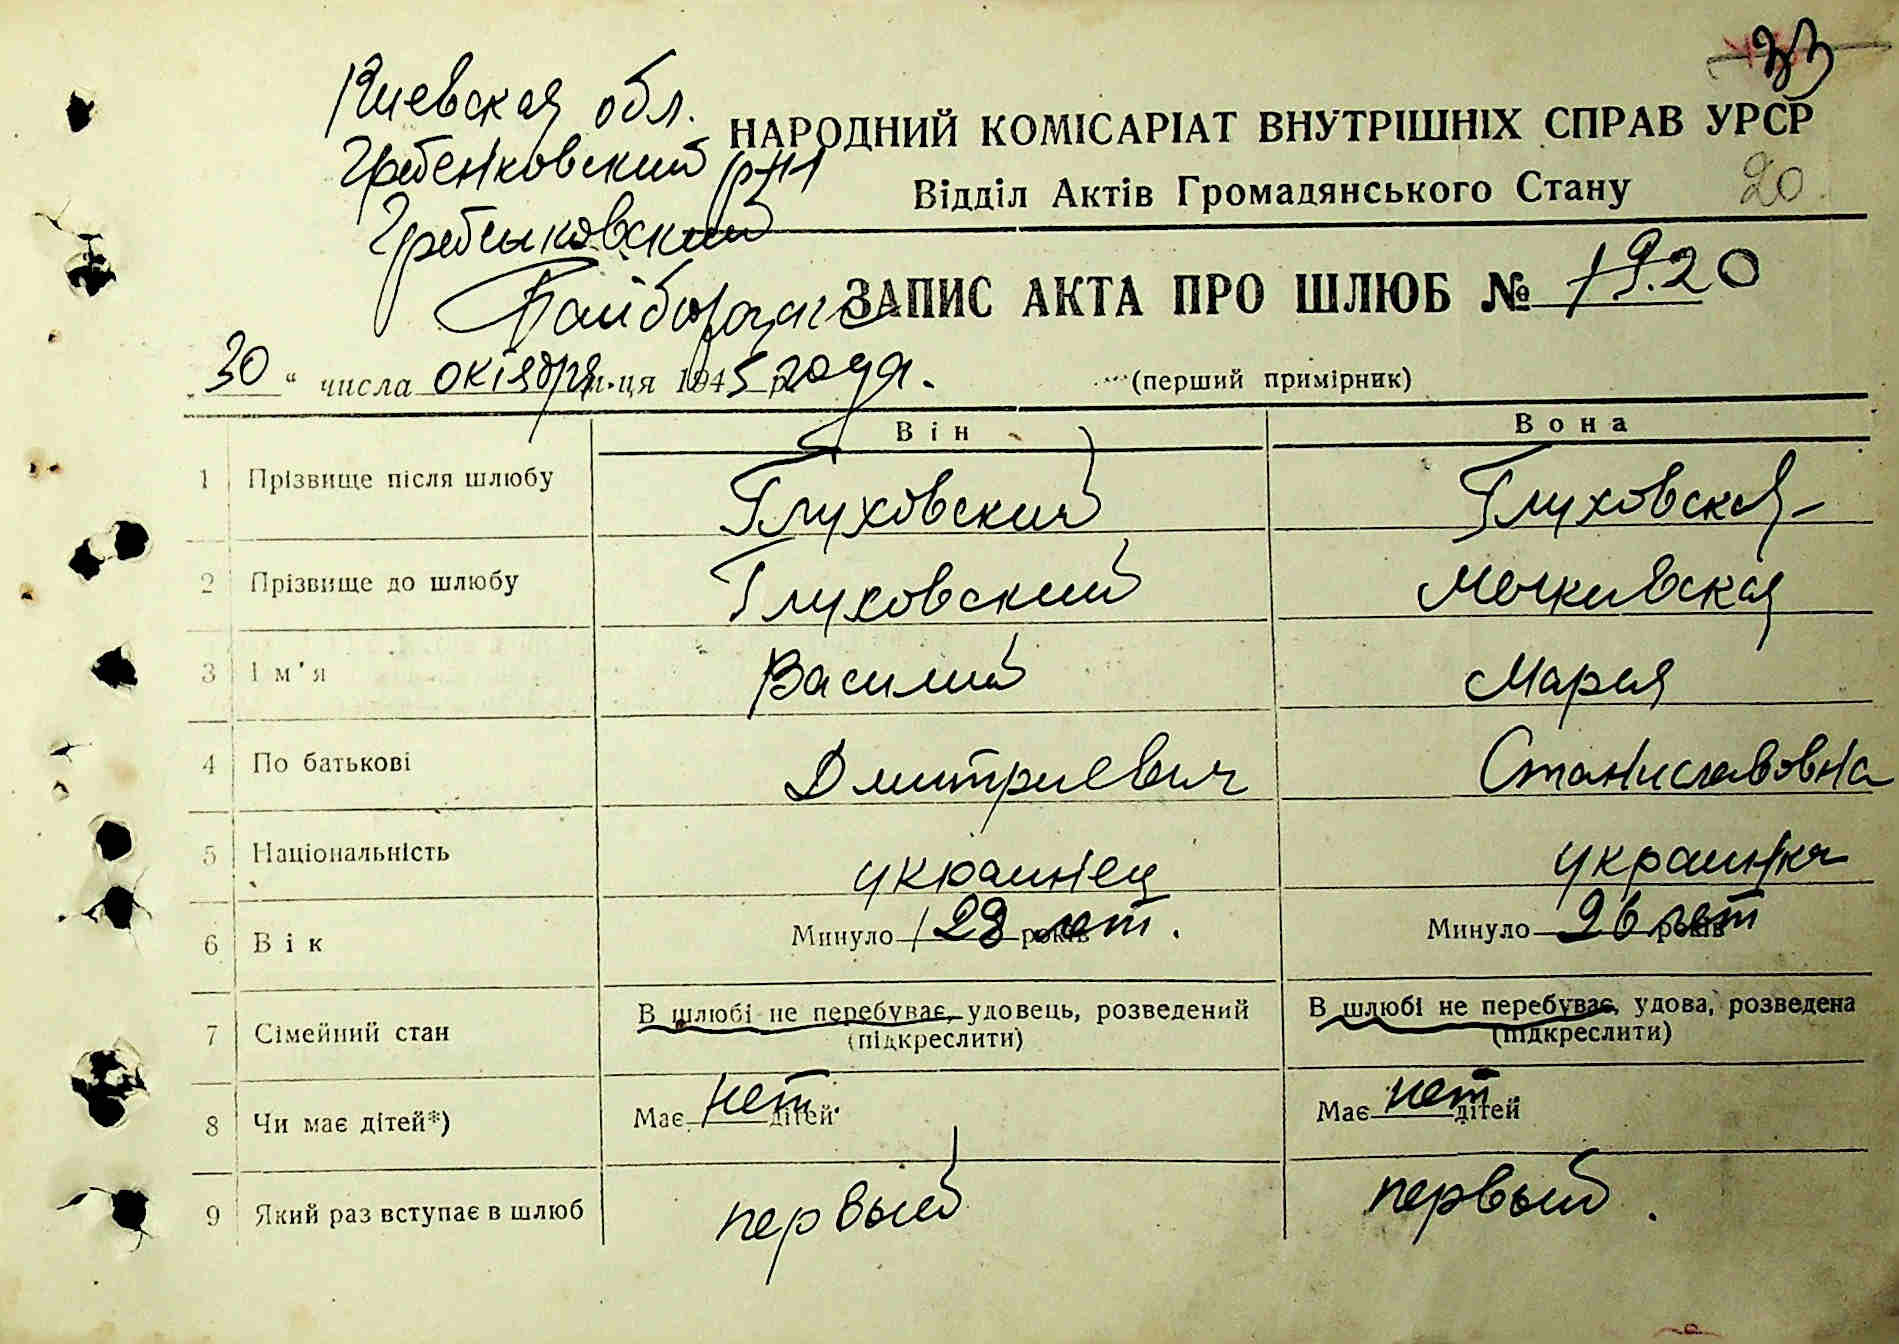 33
Киевская обл.
Гребенковский р-н
Гребенковский
НАРОДНИЙ КОМІСАРІАТ ВНУТРІШНІХ СПРАВ УРСР
Відділ Актів Громадянського Стану 20
ЗАПИС АКТА ПРО ШЛЮБ № 19.20
30 " числа октября м-ця 1945 р. года.
(перший примірник)
Він Вона
1 Прізвище після шлюбу Глуховский Глуховская
2 Прізвище до шлюбу Глуховский
3 Ім'я Василий Мария
4 По батькові Дмитриевич Станиславовна
5 Національність украинец украинка
6 Вік Минуло 28 років лет. Минуло 26 років лет
7 Сімейний стан В шлюбі не перебуває, удовець, розведений В шлюбі не перебуває, удова, розведена
(підкреслити) (підкреслити)
8 Чи має дітей*) Має нет. дітей Має нет. дітей
9 Який раз вступає в шлюб первый первый.